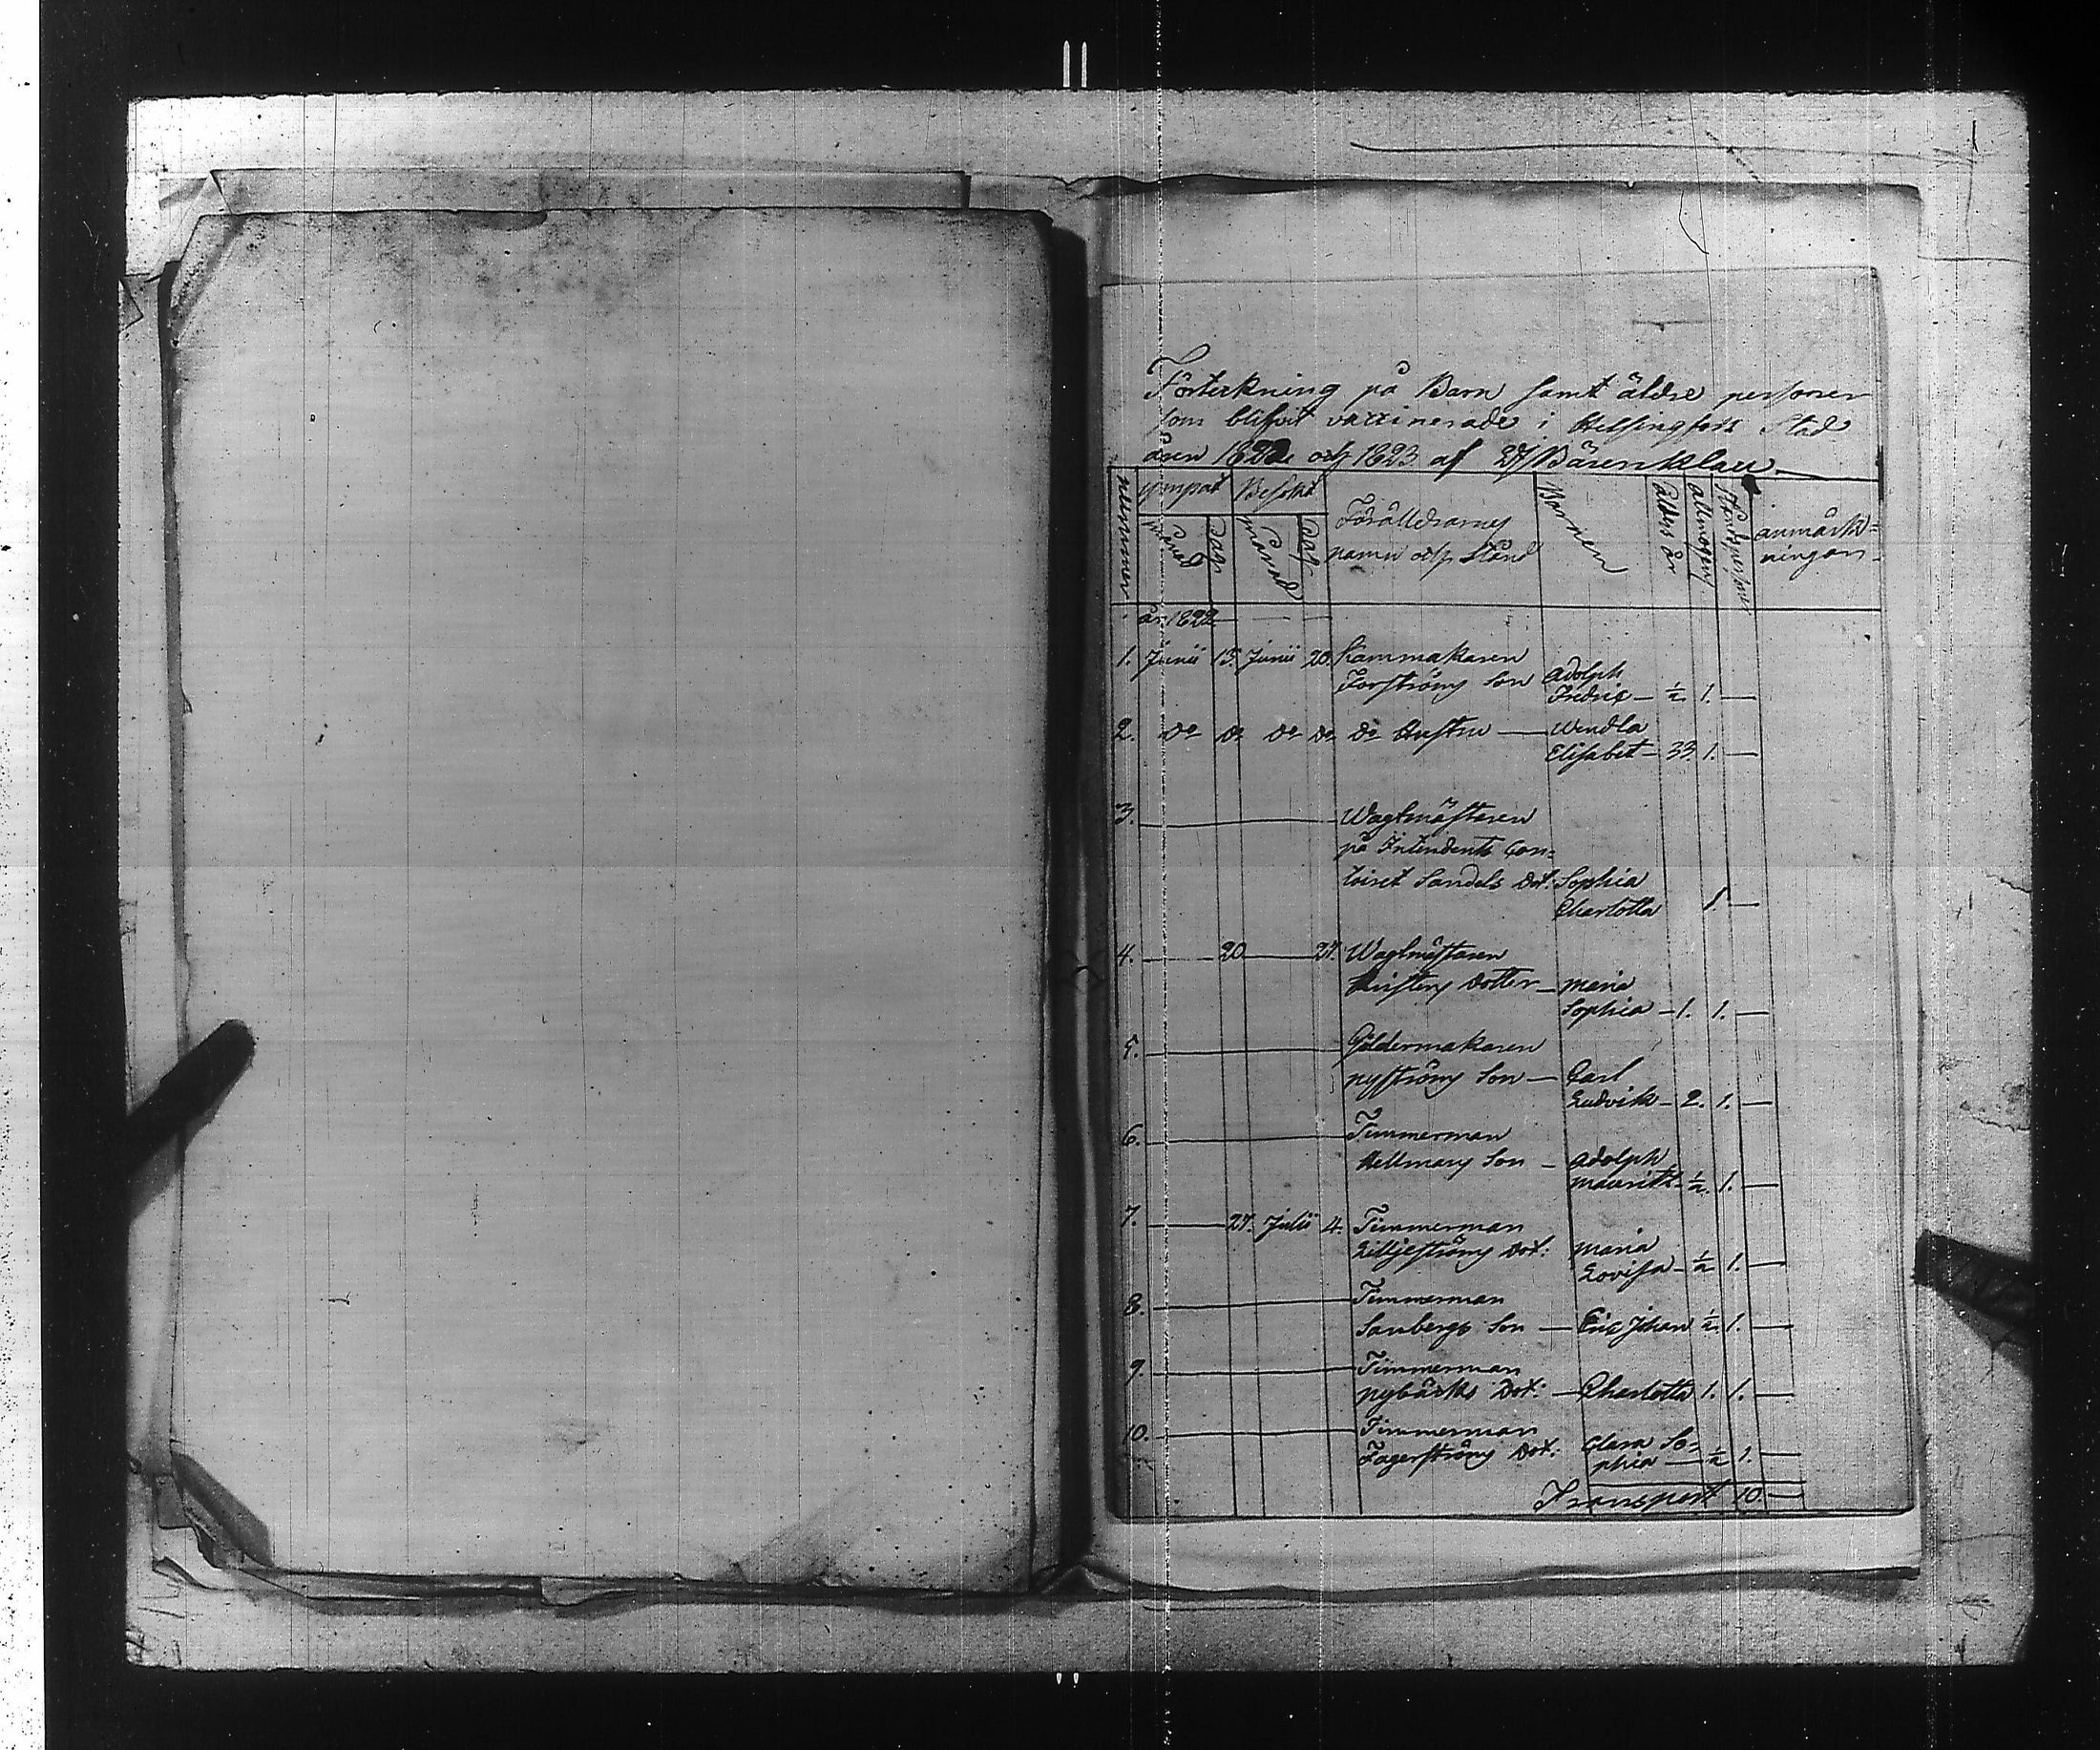 Förtekning på Barn samt äldre personer
som blifvit vaccinerade i Helsingfors Stad
åren 1822 och 1823 af Bärenklau
nummer ympat Besökt Föräldrarnes namn och Stånd Barnen ålder år allmogens Ståndspersoner anmärk=
månad Dato månad Dato ningar.
år 1822
1. Junii 13. Junii 20. Kammakaren
Forströms Son Adolph
Fredric — ½ 1. —
2. do do do do do Hustru — Wendla
Elisabet — 33. 1. —
3. — Wagtmästaren
på Intendents Con=
toiret Sandels Dot: Sophia
Charlotta 1. —
4. — 20 — 27. Wagtmästaren
Dotter — Maria
Sophia — 1. 1. —
5. — Göldermakaren
nyströms Son — Carl
Ludvik — 2. 1. —
6. — Timmerman
Hellmans Son — Adolph
Mauritz — ½. 1. —
7. — 27. Julii 4. Timmerman
Liljeströms Dot: Maria
Lovisa — ½ 1. —
8. — Timmerman
Sanbergs Son — Eric Johan ½. 1. —
9. — Timmerman
nybäcks Dot: — Charlotta 1. 1. —
10. — Timmerman
Fagerströms Dot: Clara So=
phia — ½ 1. —
Transport 10 —